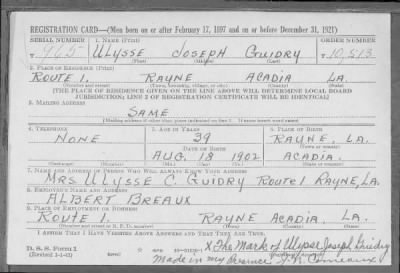 REGISTRATION CARD—(Men born on or after February 17, 1897 and on or before December 31, 1921)
SERIAL NUMBER 1. NAME (Print) ORDER NUMBER
965 ULYSSE JOSEPH GUIDRY 10,513
(First) (Middle) (Last)
2. PLACE OF RESIDENCE (Print)
ROUTE 1. RAYNE ACADIA LA.
(Number and street) (Town, township, village, or city) (County) (State)
[THE PLACE OF RESIDENCE GIVEN ON THE LINE ABOVE WILL DETERMINE LOCAL BOARD
JURISDICTION; LINE 2 OF REGISTRATION CERTIFICATE WILL BE IDENTICAL]
3. MAILING ADDRESS
SAME
[Mailing address if other than place indicated on line 2. If same insert word same]
4. TELEPHONE 5. AGE IN YEARS 6. PLACE OF BIRTH
NONE 39 RAYNE, LA.
DATE OF BIRTH (Town or county)
AUG. 18 1902 ACADIA.
(Exchange) (Number) (Mo.) (Day) (Yr.) (State or country)
7. NAME AND ADDRESS OF PERSON WHO WILL ALWAYS KNOW YOUR ADDRESS
MRS ULYSSE C. GUIDRY ROUTE 1 RAYNE, LA.
8. EMPLOYER'S NAME AND ADDRESS
ALBERT BREAUX
9. PLACE OF EMPLOYMENT OR BUSINESS
ROUTE 1. RAYNE ACADIA, LA.
(Number and street or R. F. D. number) (Town) (County) (State)
I AFFIRM THAT I HAVE VERIFIED ABOVE ANSWERS AND THAT THEY ARE TRUE.
D. S. S. Form 1 X The Mark of Ulysse Joseph Guidry
(Revised 1-1-42) made in my Presence